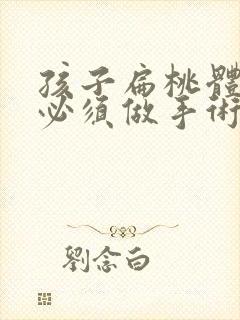 孩子扁桃體
必須做手術
劉念白